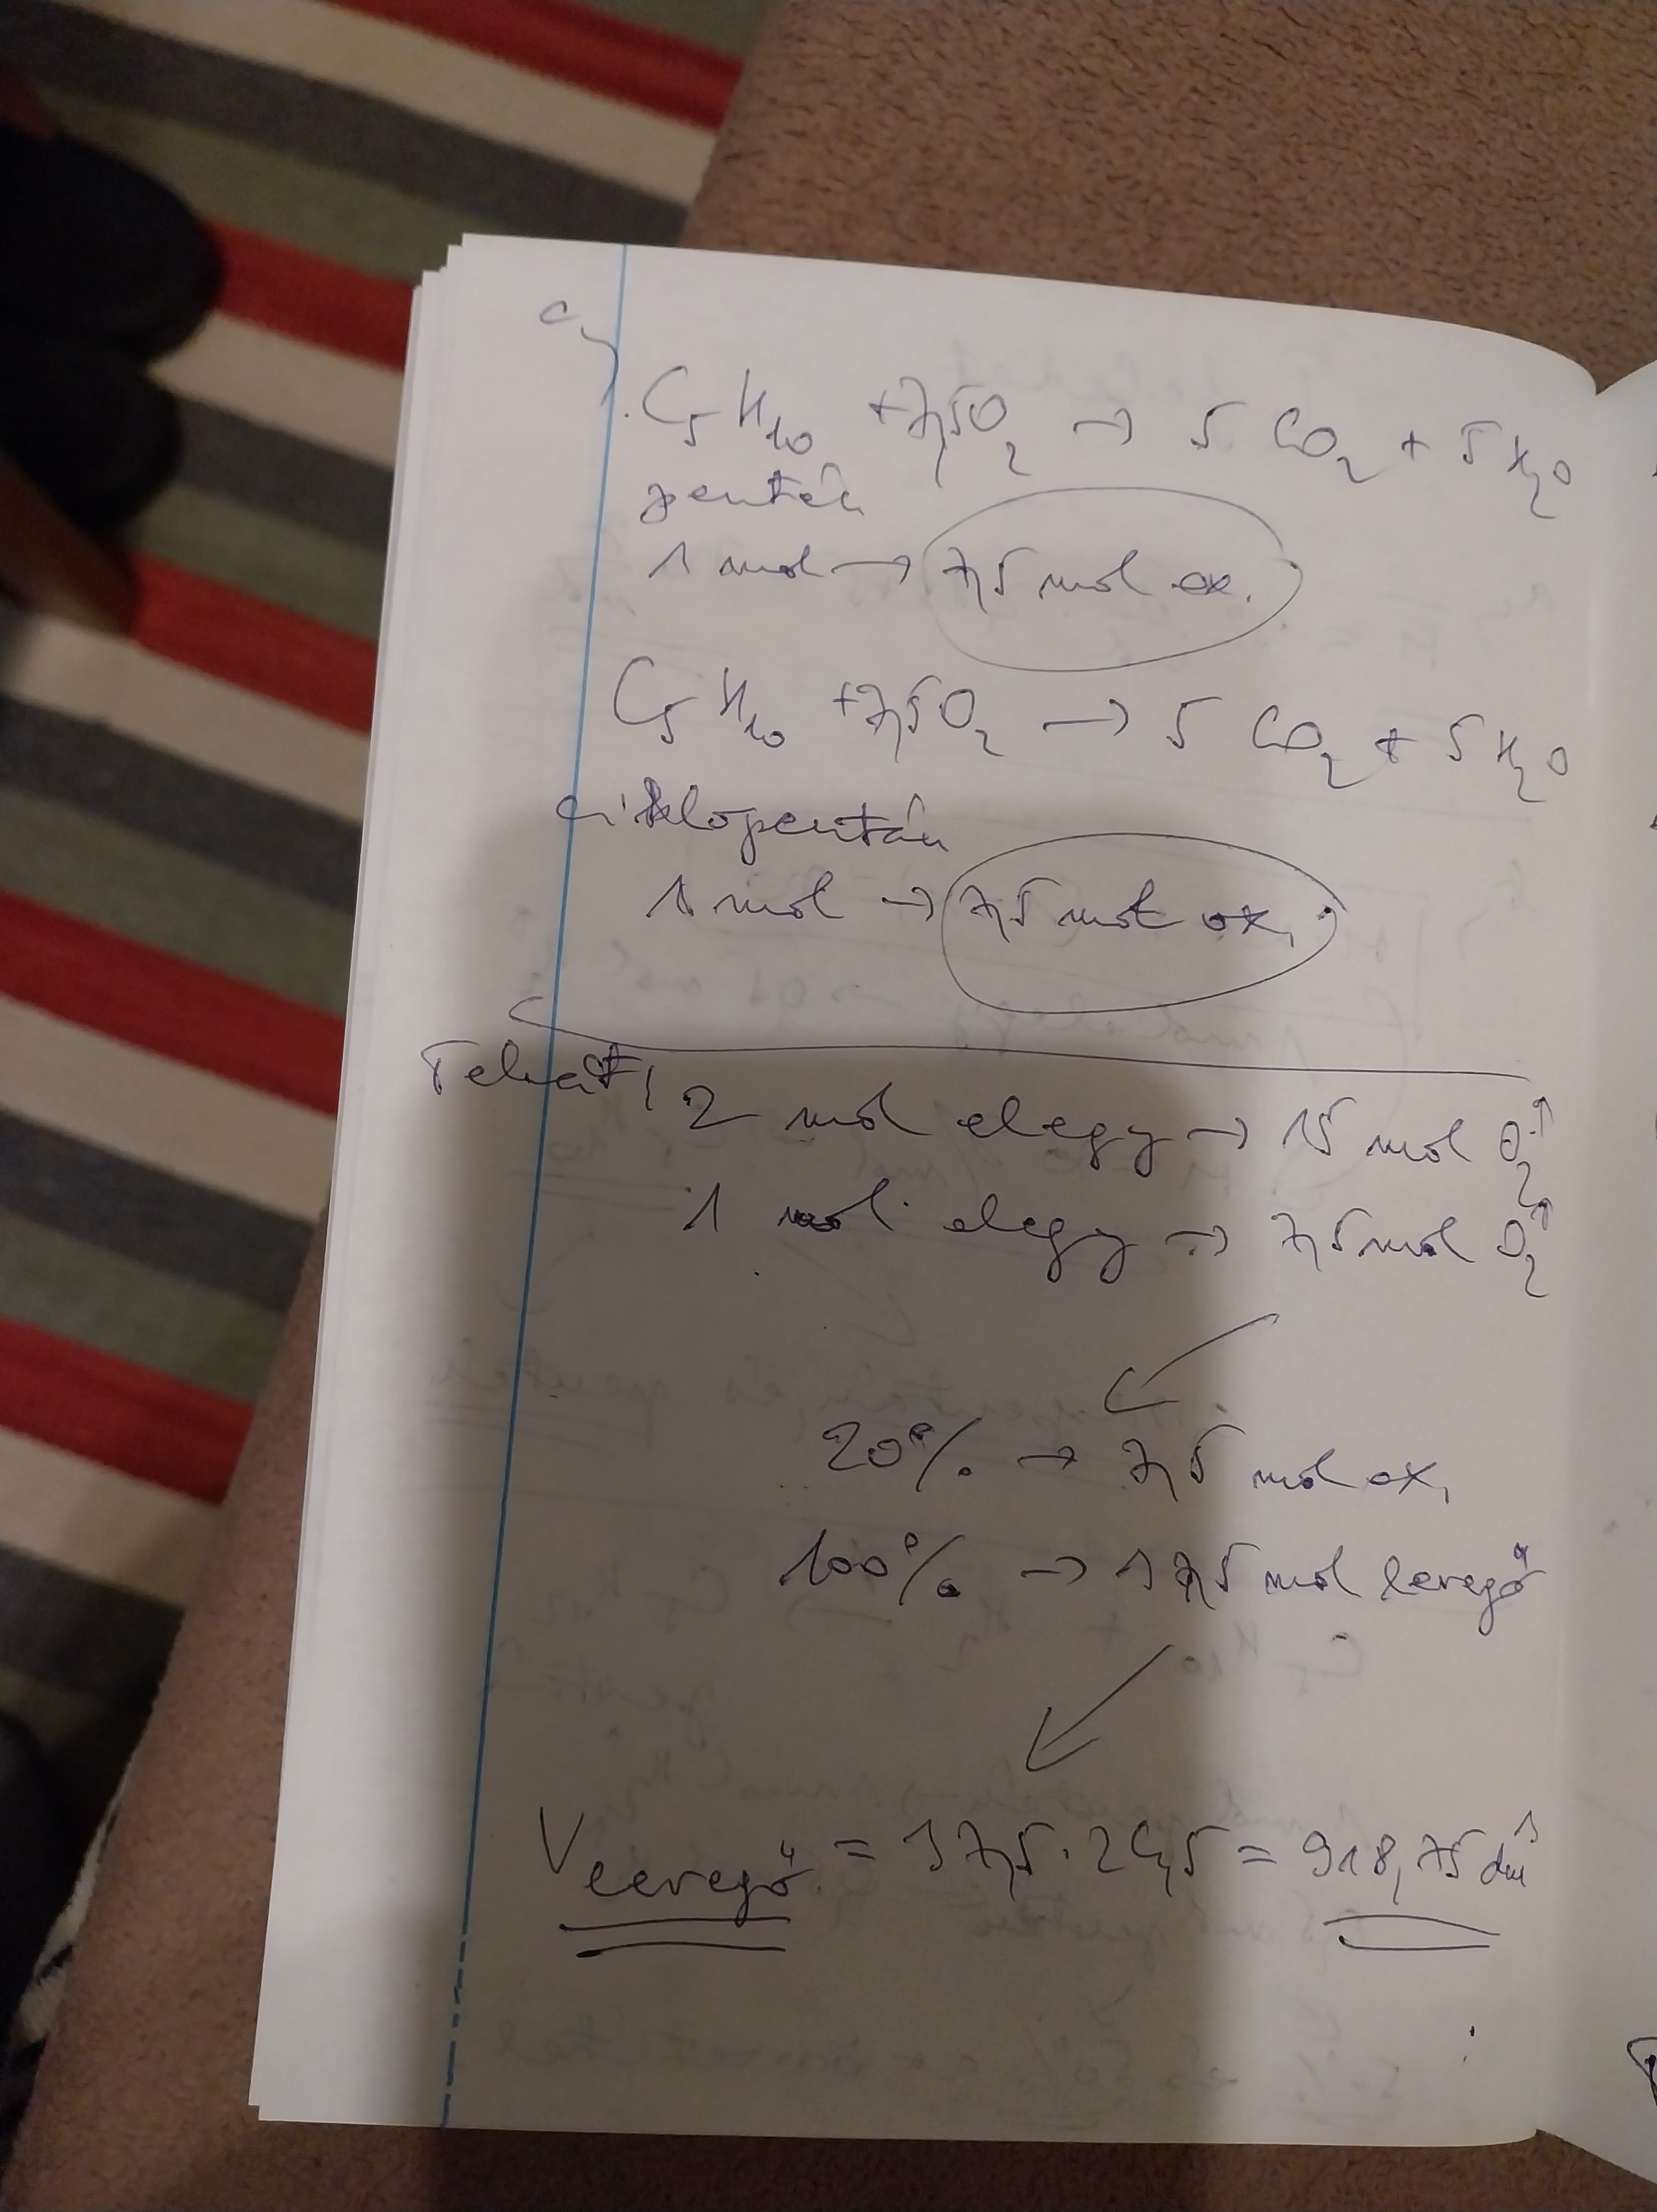 c,
C5H10 + 7,5O2 → 5 CO2 + 5 H2O
pentén
1 mol → 7,5 mol ox.
C5H10 + 7,5O2 → 5 CO2 + 5 H2O
ciklopentán
1 mol → 7,5 mol ox,
Tehát, 2 mol elegy → 15 mol O2↑
1 mol elegy → 7,5 mol O2↑
20% → 7,5 mol ox,
100% → 37,5 mol levegő
Vlevegő = 37,5 · 24,5 = 918,75 dm3